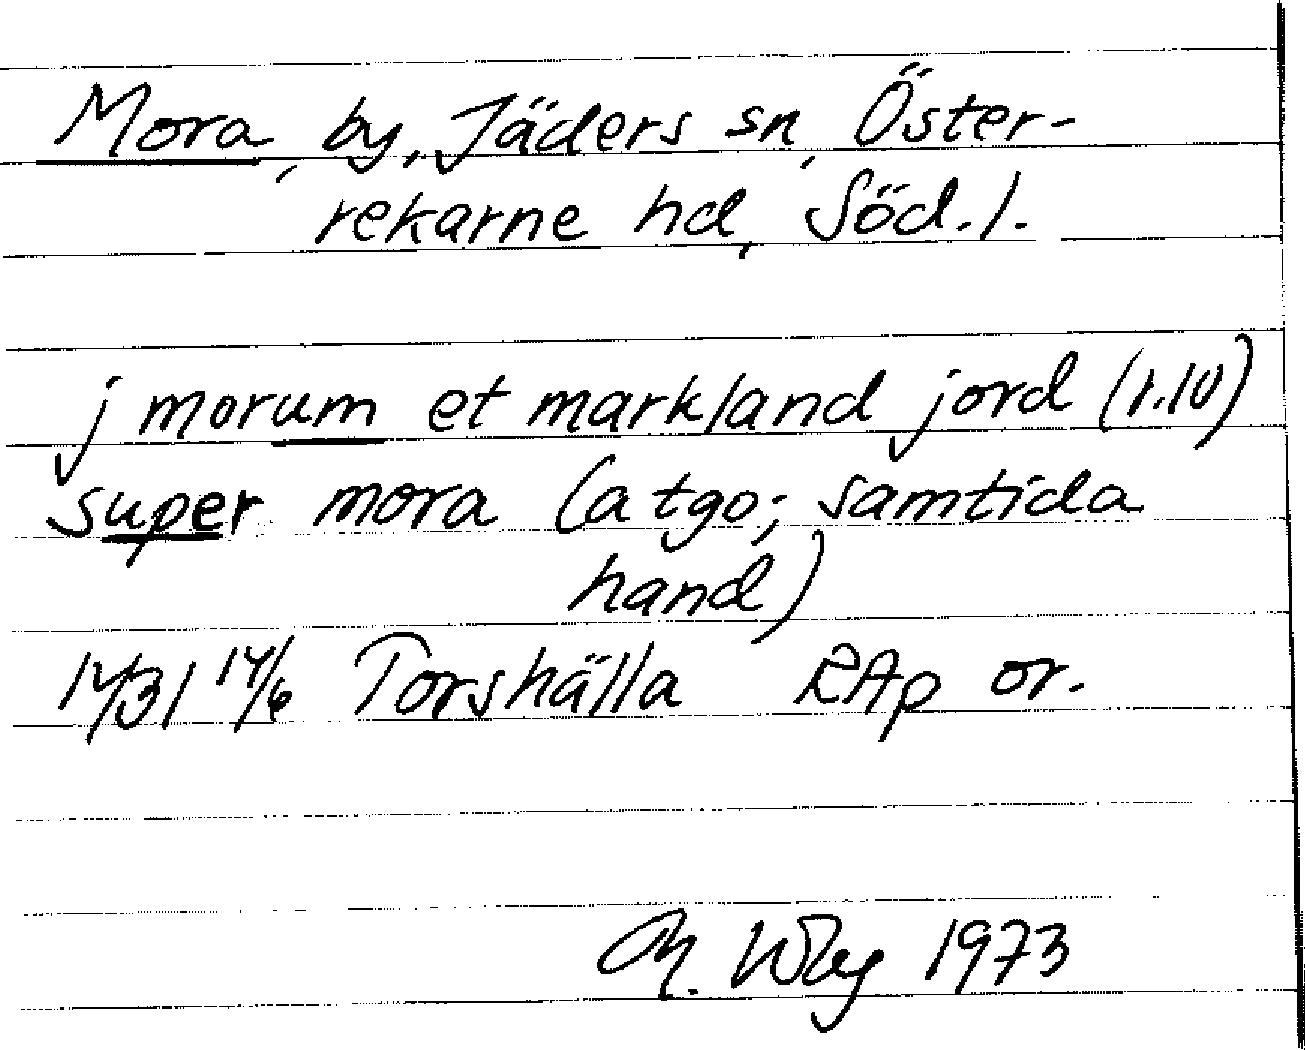 Mora, by, Jäders sn, Öster-
rekarne hd, Söd. l.
j morum et markland jord (r.10)
super mora (a tgo; samtida
hand)
1431 14/6 Torshälla RAp or.
1973